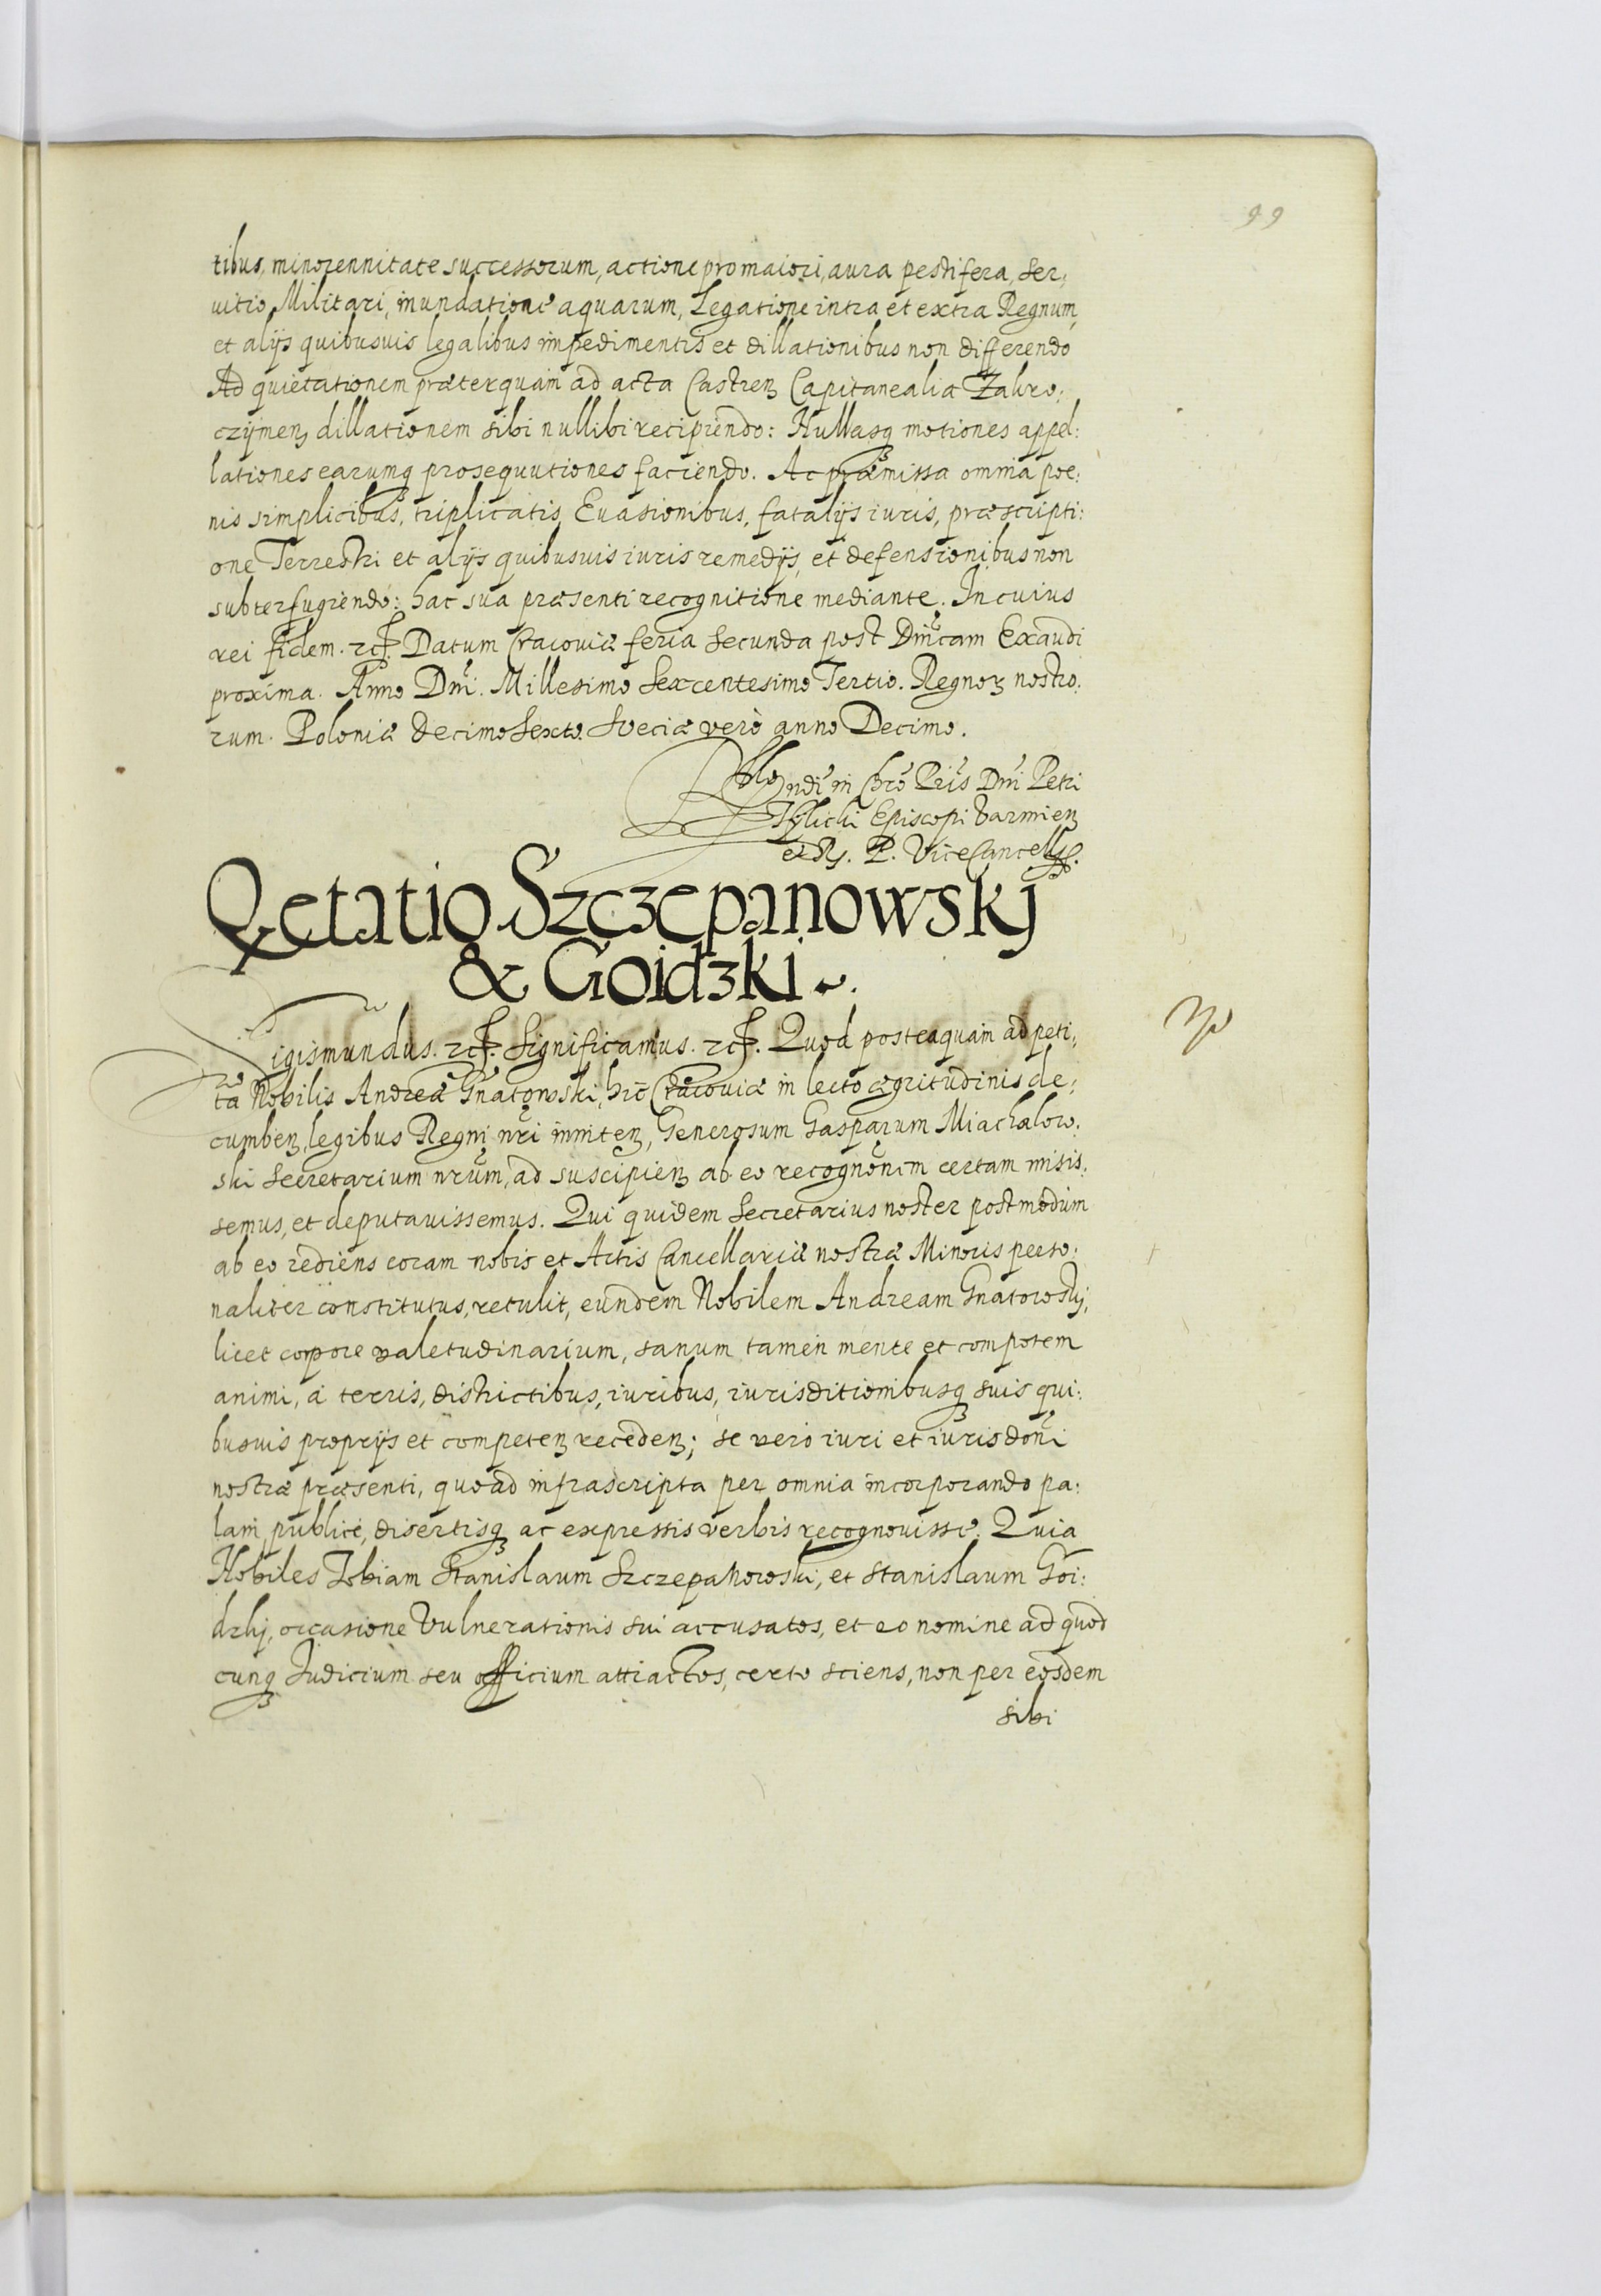 99
tibus, minorennitate successorum, actione pro maiori, aura pestifera, ser,
vitio Militari, inundatione aquarum, Legatione intra et extra Regnum,
et alijs quibusvis legalibus impedimentis et dillationibus non differendo
Ad quietationem præterquam ad acta Castreñ Capitanealia Zakro:
czijmeñ dillationem sibi nullibi recipiendo: Nullasq motiones appel:
lationes earumq prosequutiones faciendo. Ac præmissa omnia poe:
nis simplicibus, triplicatis, Evasionibus, fatalijs iuris, præscripti:
one Terrestri et alijs quibusvis iuris remedijs, et defensionibus non
subterfugiendo: hac sua præsenti recognitione mediante. In cuius
rei fidem. etc. Datum Cracoviæ feria secunda post Dnicam Exaudi
proxima. Anno Dni. Millesimo Sexcentesimo Tertio. Regnor nostro:
rum. Poloniæ decimo Sexto. Sveciæ verò anno Decimo.
Rndi in Chro Pris Dni Petri
Tylicki Episcopi Varmień
et R. P. ViceCancellr.
Qetatio Szczepanowskj
& Goidzki.
Sigismundus. etc. Significamus. etc. Quod posteaquam ad peti:
ta Nobilis Andreæ Gnatowski, hic Cracoviæ in lecto ægritudinis de:
cumbeñ, legibus Regni nri inniteñ, Generosum Gasparum Miachalow:
ski Secretarium nrum, ad suscipieñ ab eo recognonem certam misis:
semus, et deputavissemus. Qui quidem Secretarius noster postmodum
ab eo rediens coram nobis et Actis Cancellariæ nostræ Minoris perso:
naliter constitutus, retulit, eundem Nobilem Andream Gnatowskj,
licet corpore valetudinarium, sanum tamen mente et compotem
animi, à terris, districtibus, iuribus, iurisditionibusq suis qui:
busvis proprijs et competeñ recedeñ; se verò iuri et iurisdoni
nostræ præsenti, quoad infrascripta per omnia incorporando pa:
lam, publicè, disertisq ac expressis verbis recognovisse. Quia
Nobiles Tobiam Stanislaum Szczepanowski, et Stanislaum Goi:
dzkj, occasione Vulnerationis sui accusatos, et eo nomine ad quod
cunq Iudicium seu officium attractos, certo sciens, non per eosdem
sibi